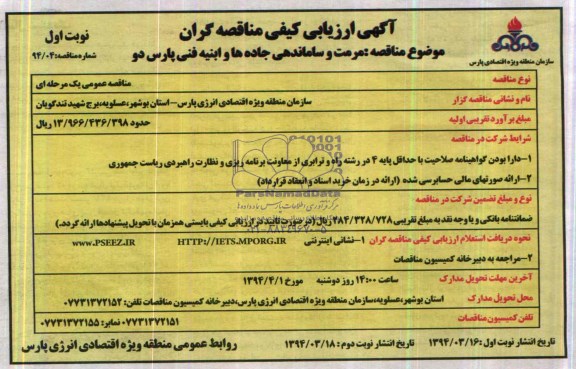 آگهی ارزیابی کیفی مناقصه گران
نوبت اول
موضوع مناقصه :مرمت و ساماندهی جاده ها و ابنیه فنی پارس دو
شماره مناقصه: ۹۴/۰۴
سازمان منطقه ویژه اقتصادی پارس
نوع مناقصه
مناقصه عمومی یک مرحله ای
نام و نشانی مناقصه گزار
سازمان منطقه ویژه اقتصادی انرژی پارس- استان بوشهر، عسلویه، برج شهید تندگویان
مبلغ برآورد تقریبی اولیه
حدود ۱۳/۹۶۶/۴۳۶/۳۹۸ ریال
شرایط شرکت در مناقصه
۱-دارا بودن گواهینامه صلاحیت با حداقل پایه ۴ در رشته راه و ترابری از معاونت برنامه ریزی و نظارت راهبردی ریاست جمهوری
۲-ارائه صورتهای مالی حسابرسی شده (ارائه در زمان خرید اسناد و انعقاد قرارداد)
نوع و مبلغ تضمین شرکت در مناقصه
ضمانتنامه بانکی و یا وجه نقد به مبلغ تقریبی ۴۸۴/۳۲۸/۷۲۸ ریال (در صورت تائید در ارزیابی کیفی بایستی همزمان با تحویل پیشنهادها ارائه گردد.)
نحوه دریافت استعلام ارزیابی کیفی مناقصه گران
۱-نشانی اینترنتی HTTP://IETS.MPORG.IR WWW.PSEEZ.IR
۲-مراجعه به دبیرخانه کمیسیون مناقصات
آخرین مهلت تحویل مدارک
ساعت ۱۴:۰۰ روز دوشنبه مورخ ۱۳۹۴/۴/۱
محل تحویل مدارک
استان بوشهر،عسلویه،سازمان منطقه ویژه اقتصادی انرژی پارس،دبیرخانه کمیسیون مناقصات تلفن: ۰۷۷۳۱۳۷۲۱۵۲
تلفن کمیسیون مناقصات
۰۷۷۳۱۳۷۲۱۵۱ نمابر: ۰۷۷۳۱۳۷۲۱۵۵
تاریخ انتشار نوبت اول :۱۳۹۴/۰۳/۱۶ تاریخ انتشار نوبت دوم : ۱۳۹۴/۰۳/۱۸
روابط عمومی منطقه ویژه اقتصادی انرژی پارس
ParsNamadData